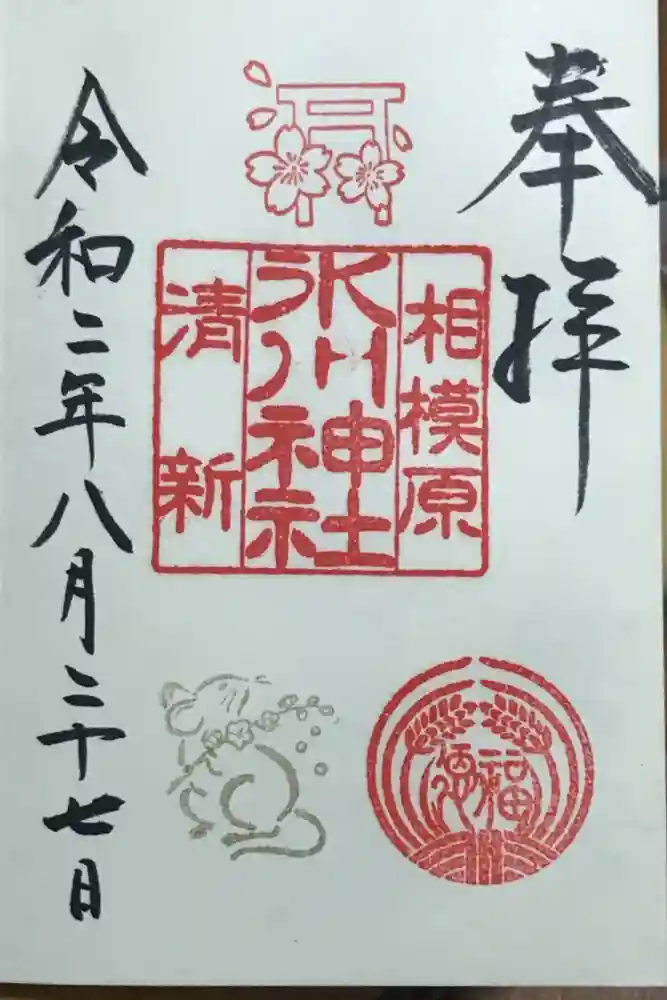 奉拝
相模原
氷川神社
清新
令和二年八月二十七日
福